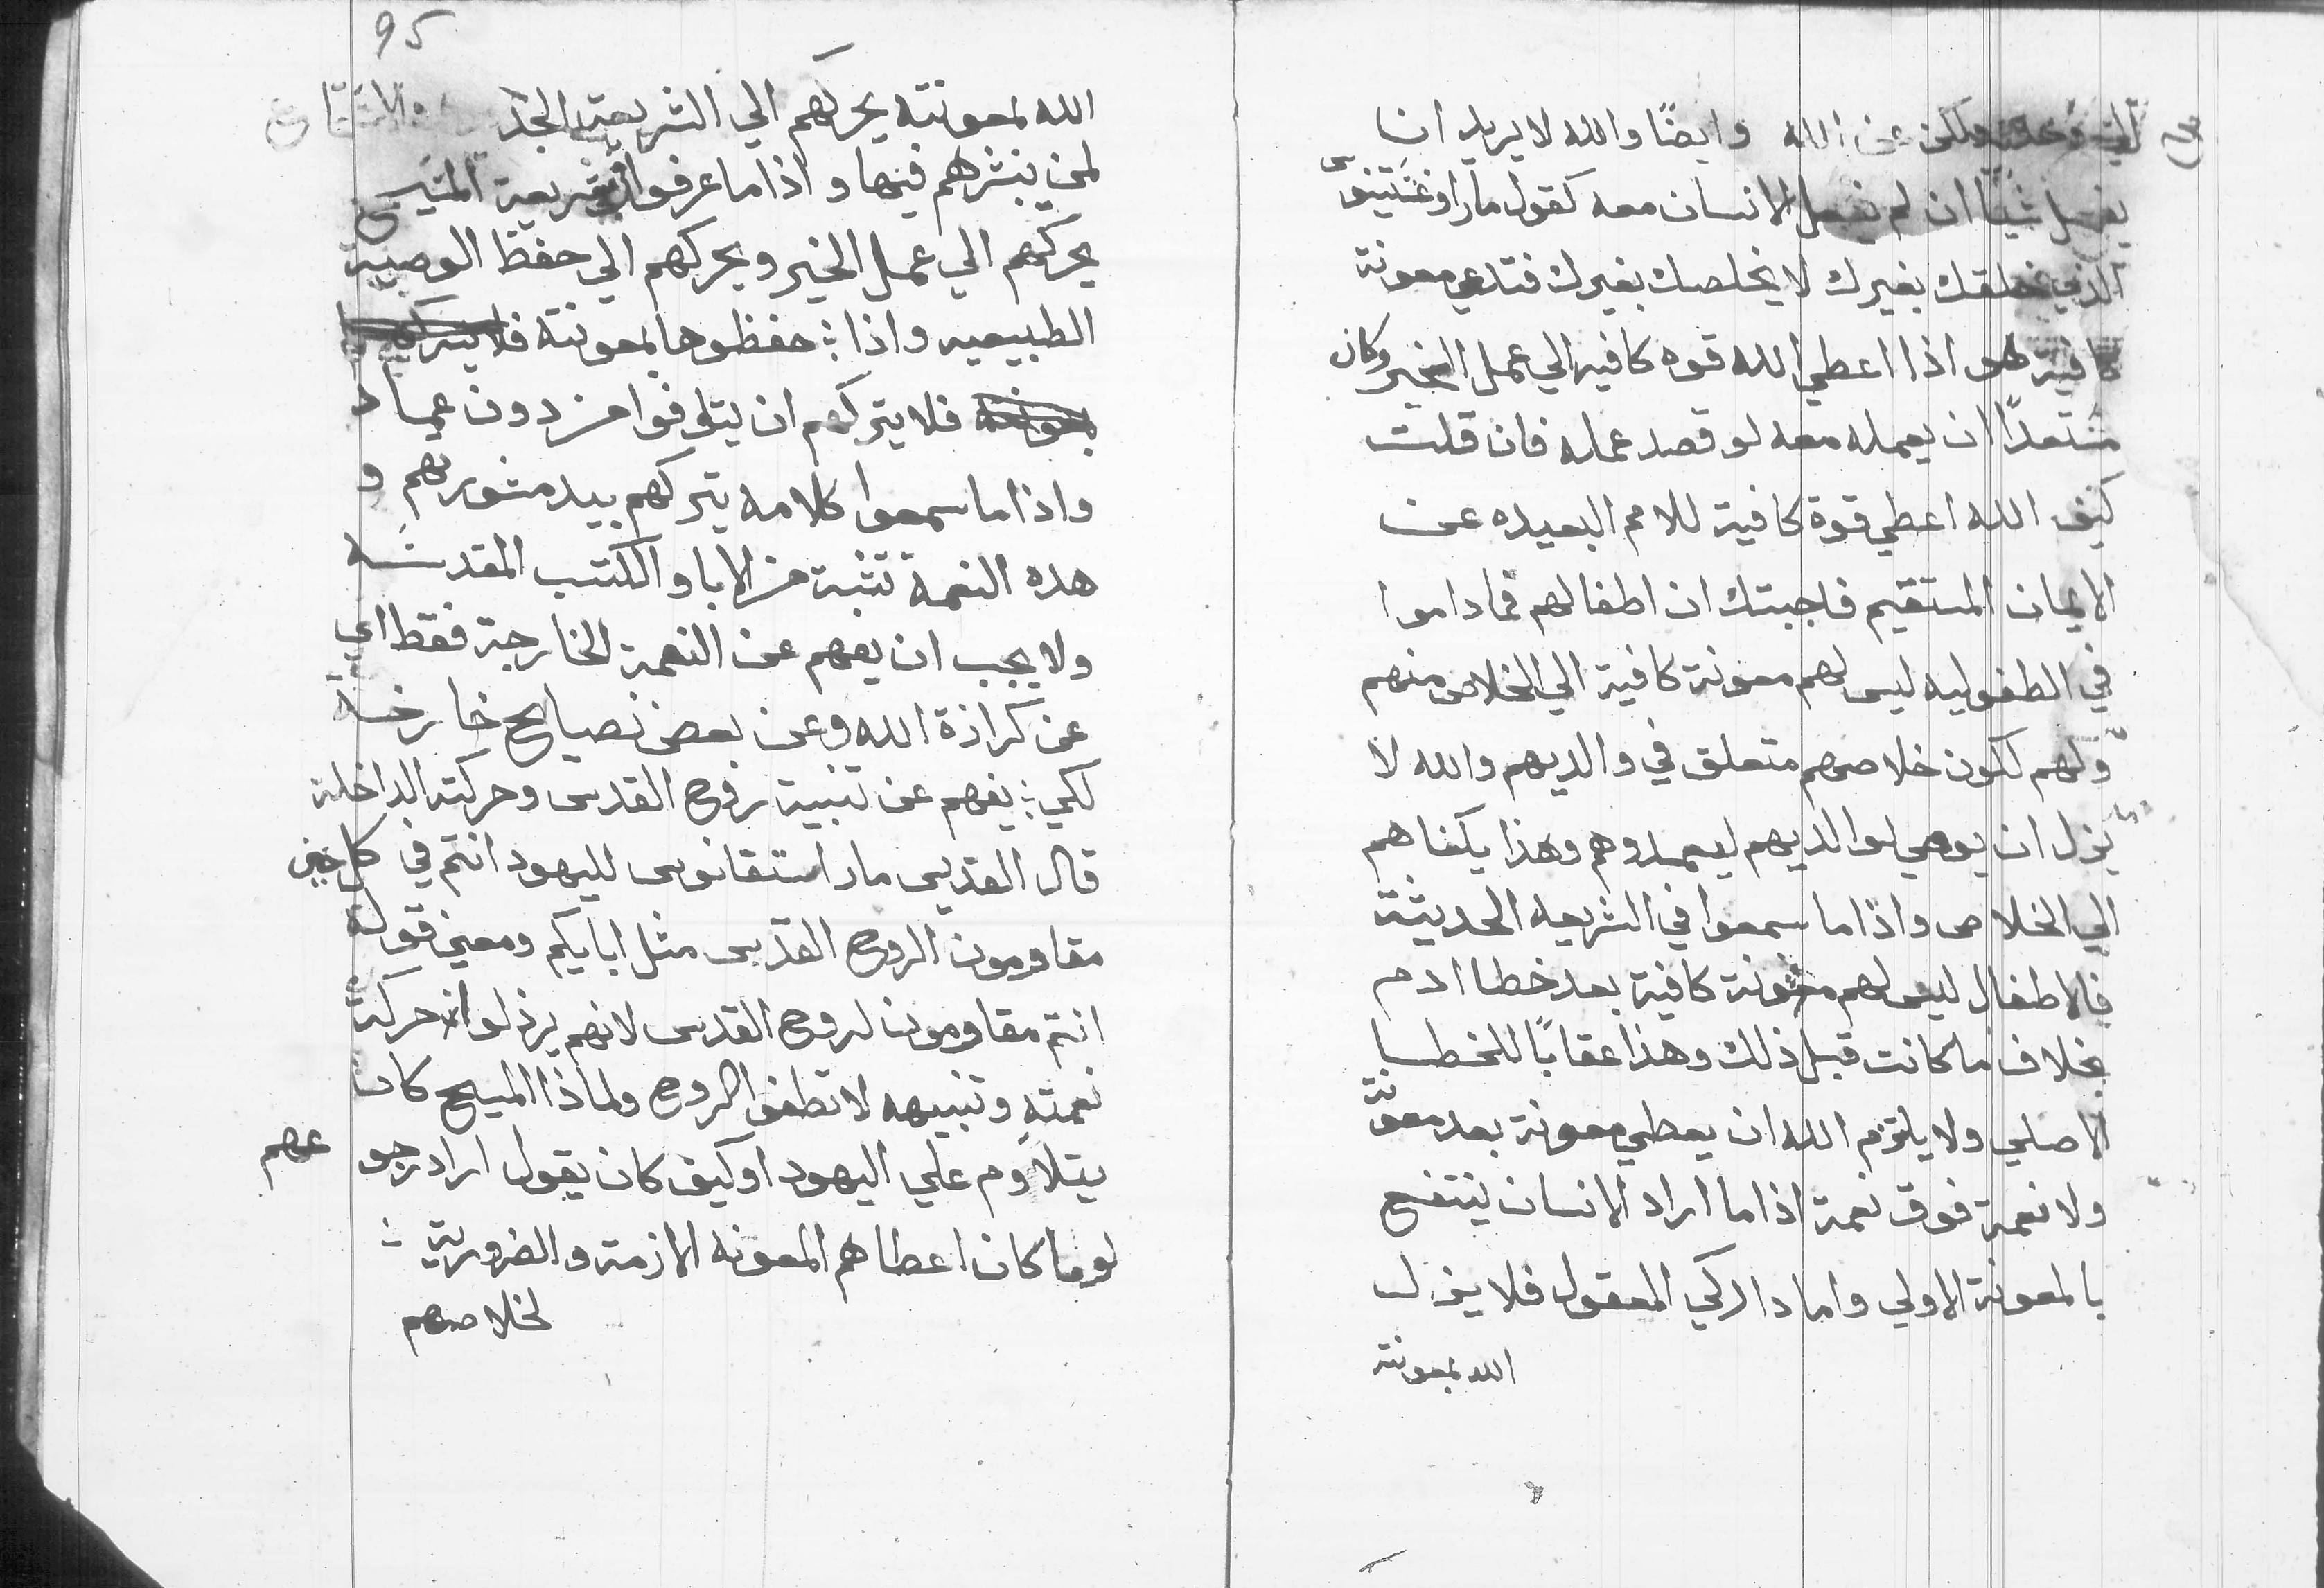 الله وايضًا والله لا يريد ان
يفعل شيًا ان لم يفعل الانسان معه كقول مار اوغشتينوس
الذي خلقك بغيرك لا يخلصك بغيرك فتدعي معونة
كافية هو اذا اعطي الله قوه كافيه الي عمل الخير وكان
مستعدًا ان يعمله معه لو قصد عمله فان قلت
كيف الله اعطي قوة كافية للامم البعيده عن
الايمان المستقيم فاجبتك ان اطفالهم فما داموا
في الطفوليه ليس لهم معونة كافية الي الخلاص منهم
ولهم لكون خلاصهم متعلق في والديهم والله لا
يزل ان يوصي لوالديهم ليعمدوهم وهذا يكفاهم
الي الخلاص واذا ما سمعوا في الشريعه الحديثة
فالاطفال ليس لهم معونة كافية بعد خطا ادم
بخلاف ما كانت قبل ذلك وهذا عقابًا للخطا
الاصلي ولا يلتزم الله ان يعطي معونة بعد معونة
ولا نعمة فوق نعمة اذا ما اراد الانسان ينتفع
بالمعونة الاولي واما داركي المعقول فلا يزل
الله بمعونته
95
الله بمعونته يحركهم الي الشريعة
لمن ينشرهم فيها واذا ما عرفوا شريعة المسيح
يحركهم الي عمل الخير ويحركهم الي حفظ الوصية
الطبيعيه واذا حفظوها بمعونته
فلا يتركهم ان يتوفوا من دون عماد
واذا ما سمعوا كلامه يتركهم بيد مشورتهم و
هده النعمة تثبة من الابا والكتب المقدسه
ولا يجب ان يفهم عن النعمة الخارجة فقط اي
عن كرازة الله وعن بعض نصايح خارجه
لكي يفهم عن تنبية روح القدس وحركته الداخلة
قال القديس مار استفانوس لليهود انتم في كل حين
مقاومون الروح القدس مثل ابايكم ومعني قوله
انتم مقاومون لروح القدس لانهم يرذلوا حركة
نعمته وتنبيهه لا تطفوا الروح ولماذا المسيح كان
يتلاوم علي اليهود او كيف كان يقول اراد رجوعهم
لو ما كان اعطاهم المعونه الازمة والضرورية
لخلاصهم